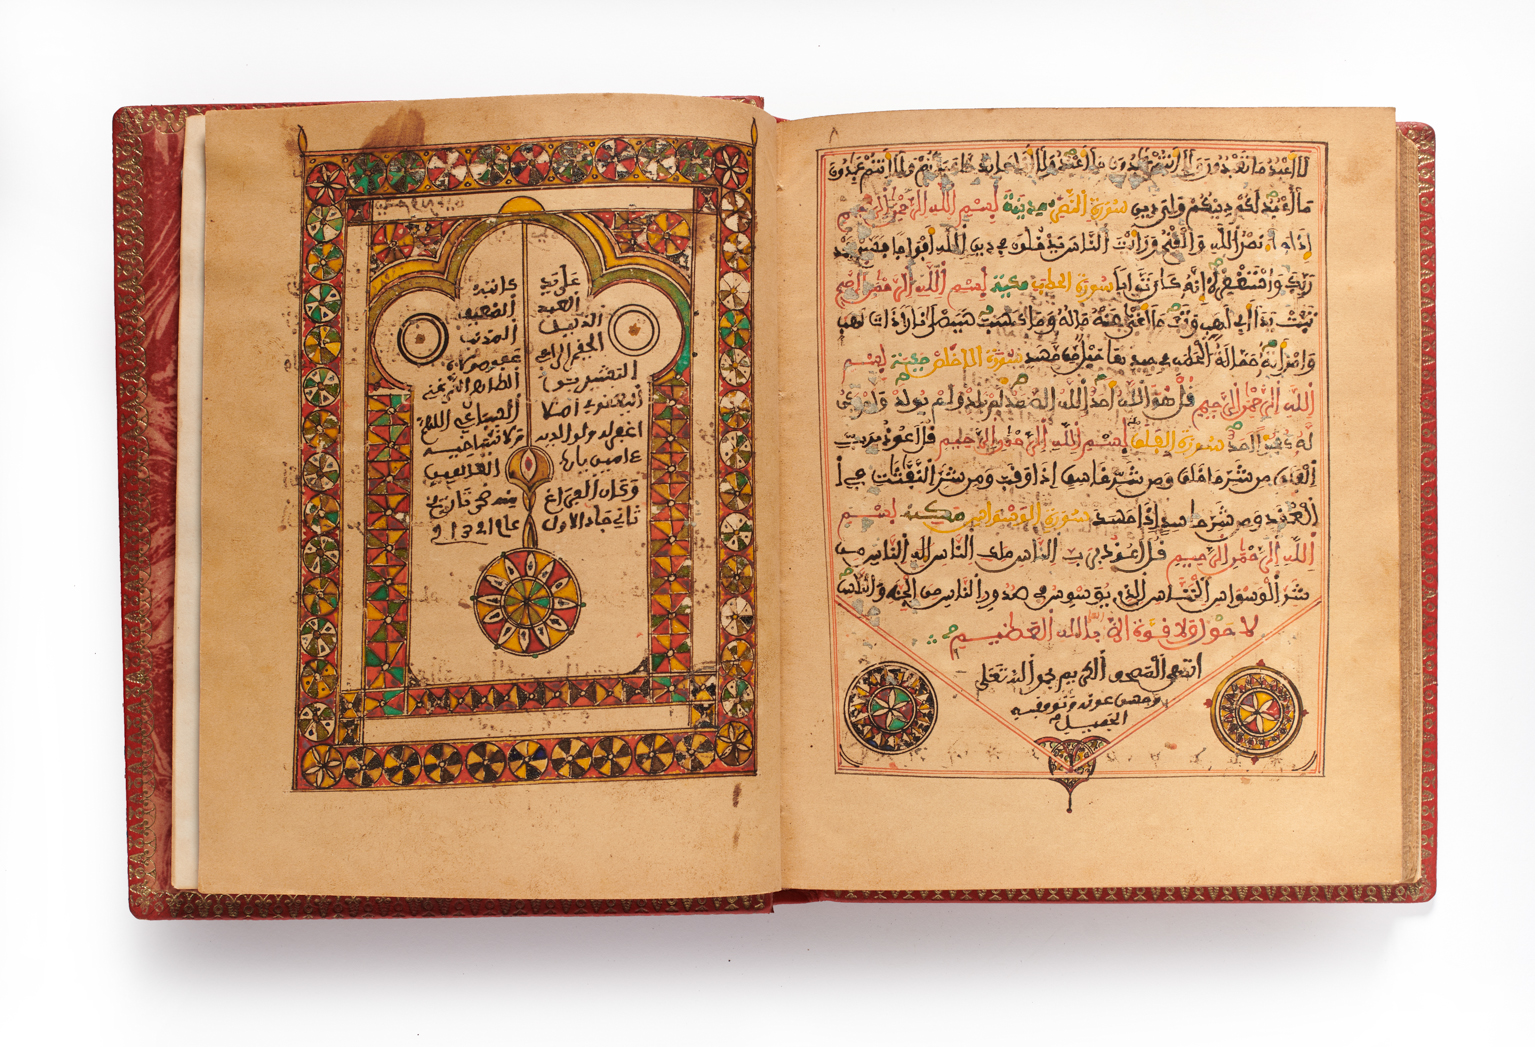 لا أعبد ما تعبدون ولا أنتم عابدون ما أعبد ولا أنا عابد ما عبدتم ولا أنتم عبدون
ما أعبد لكم دينكم ولي دين سورة النصر مدنية بسم الله الرحمن الرحيم
إذا جاء نصر الله والفتح ورأيت الناس يدخلون في دين الله أفواجا فسبح بحمد
ربك واستغفره إنه كان توابا سورة الحطب مكية بسم الله الرحمن الرحيم
تبت يدا أبي لهب وتب ما أغنى عنه ماله وما كسب سيصلى نارا ذات لهب
وامرأته حمالة الحطب في جيدها حبل من مسد سورة الإخلاص مكية بسم
الله الرحمن الرحيم قل هو الله أحد الله الصمد لم يلد ولم يولد ولم يكن
له كفؤا أحد سورة الفلق بسم الله الرحمن الرحيم قل أعوذ برب
الفلق من شر ما خلق ومن شر غاسق إذا وقب ومن شر النفثت في ا
لعقد ومن شر حاسد إذا حسد سورة الوسواس مكية بسم
الله الرحمن الرحيم قل أعوذ برب الناس ملك الناس إله الناس من
شر الوسواس الخناس الذي يوسوس في صدور الناس من الجنة والناس
لا حول ولا قوة إلا بالله العظيم
انتهى المصحف الكريم بحمد الله تعلى
وحسن عونه وتوفيقه
الجميل
على يد كاتبه
العبد الضعيف
الذليل المذنب
الحقير الراجي عفو مولاه
اغفر له ولوالديه
ءامين يارب العالمين
وكان الفراغ منه في تاريخ
ثاني جماد الاول عام 1321